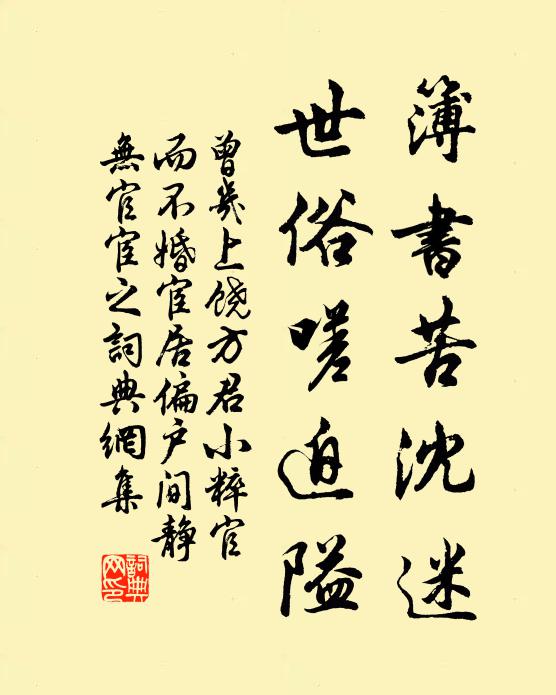 簿書苦沈迷
世俗嗟迫隘
曾幾上饶方君小粹官
而不婚宦居偏户间静
無官宦之詞典網集
詞典网印